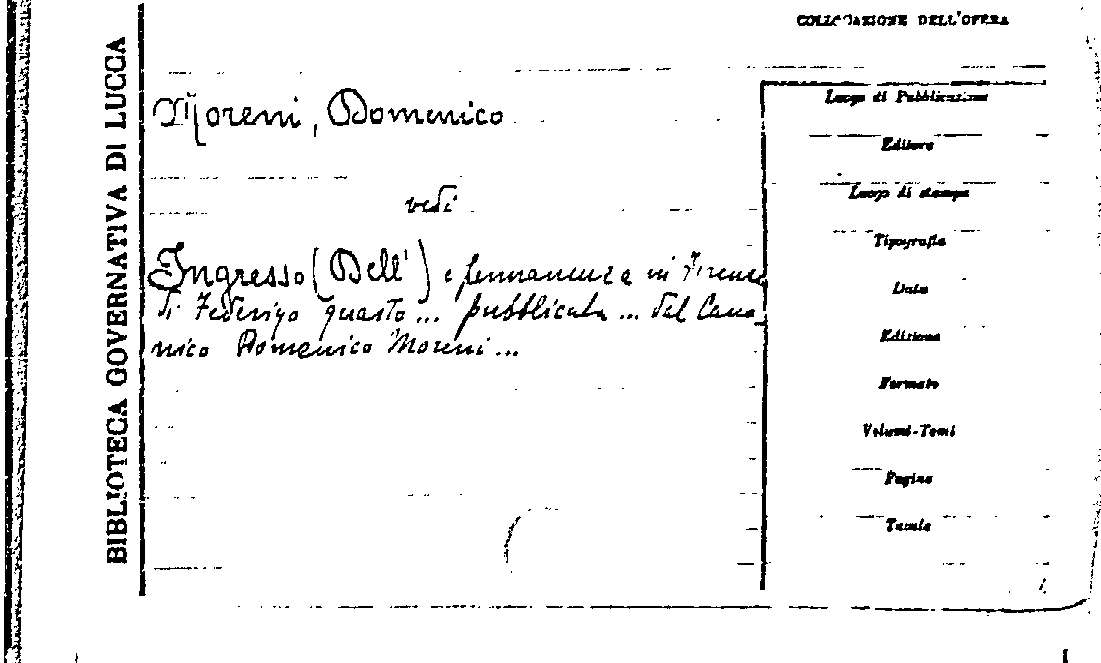 COLLOCAZIONE DELL'OPERA
BIBLIOTECA GOVERNATIVA DI LUCCA
Moreni, Domenico
vedi
Ingresso (Dell') e permanenza in Firenze
di Federigo quarto... pubblicata... dal Cano
nico Domenico Moreni...
Luogo di Pubblicazione
Editore
Luogo di stampa
Tipografia
Data
Edizione
Formato
Volumi-Tomi
Pagine
Tavole